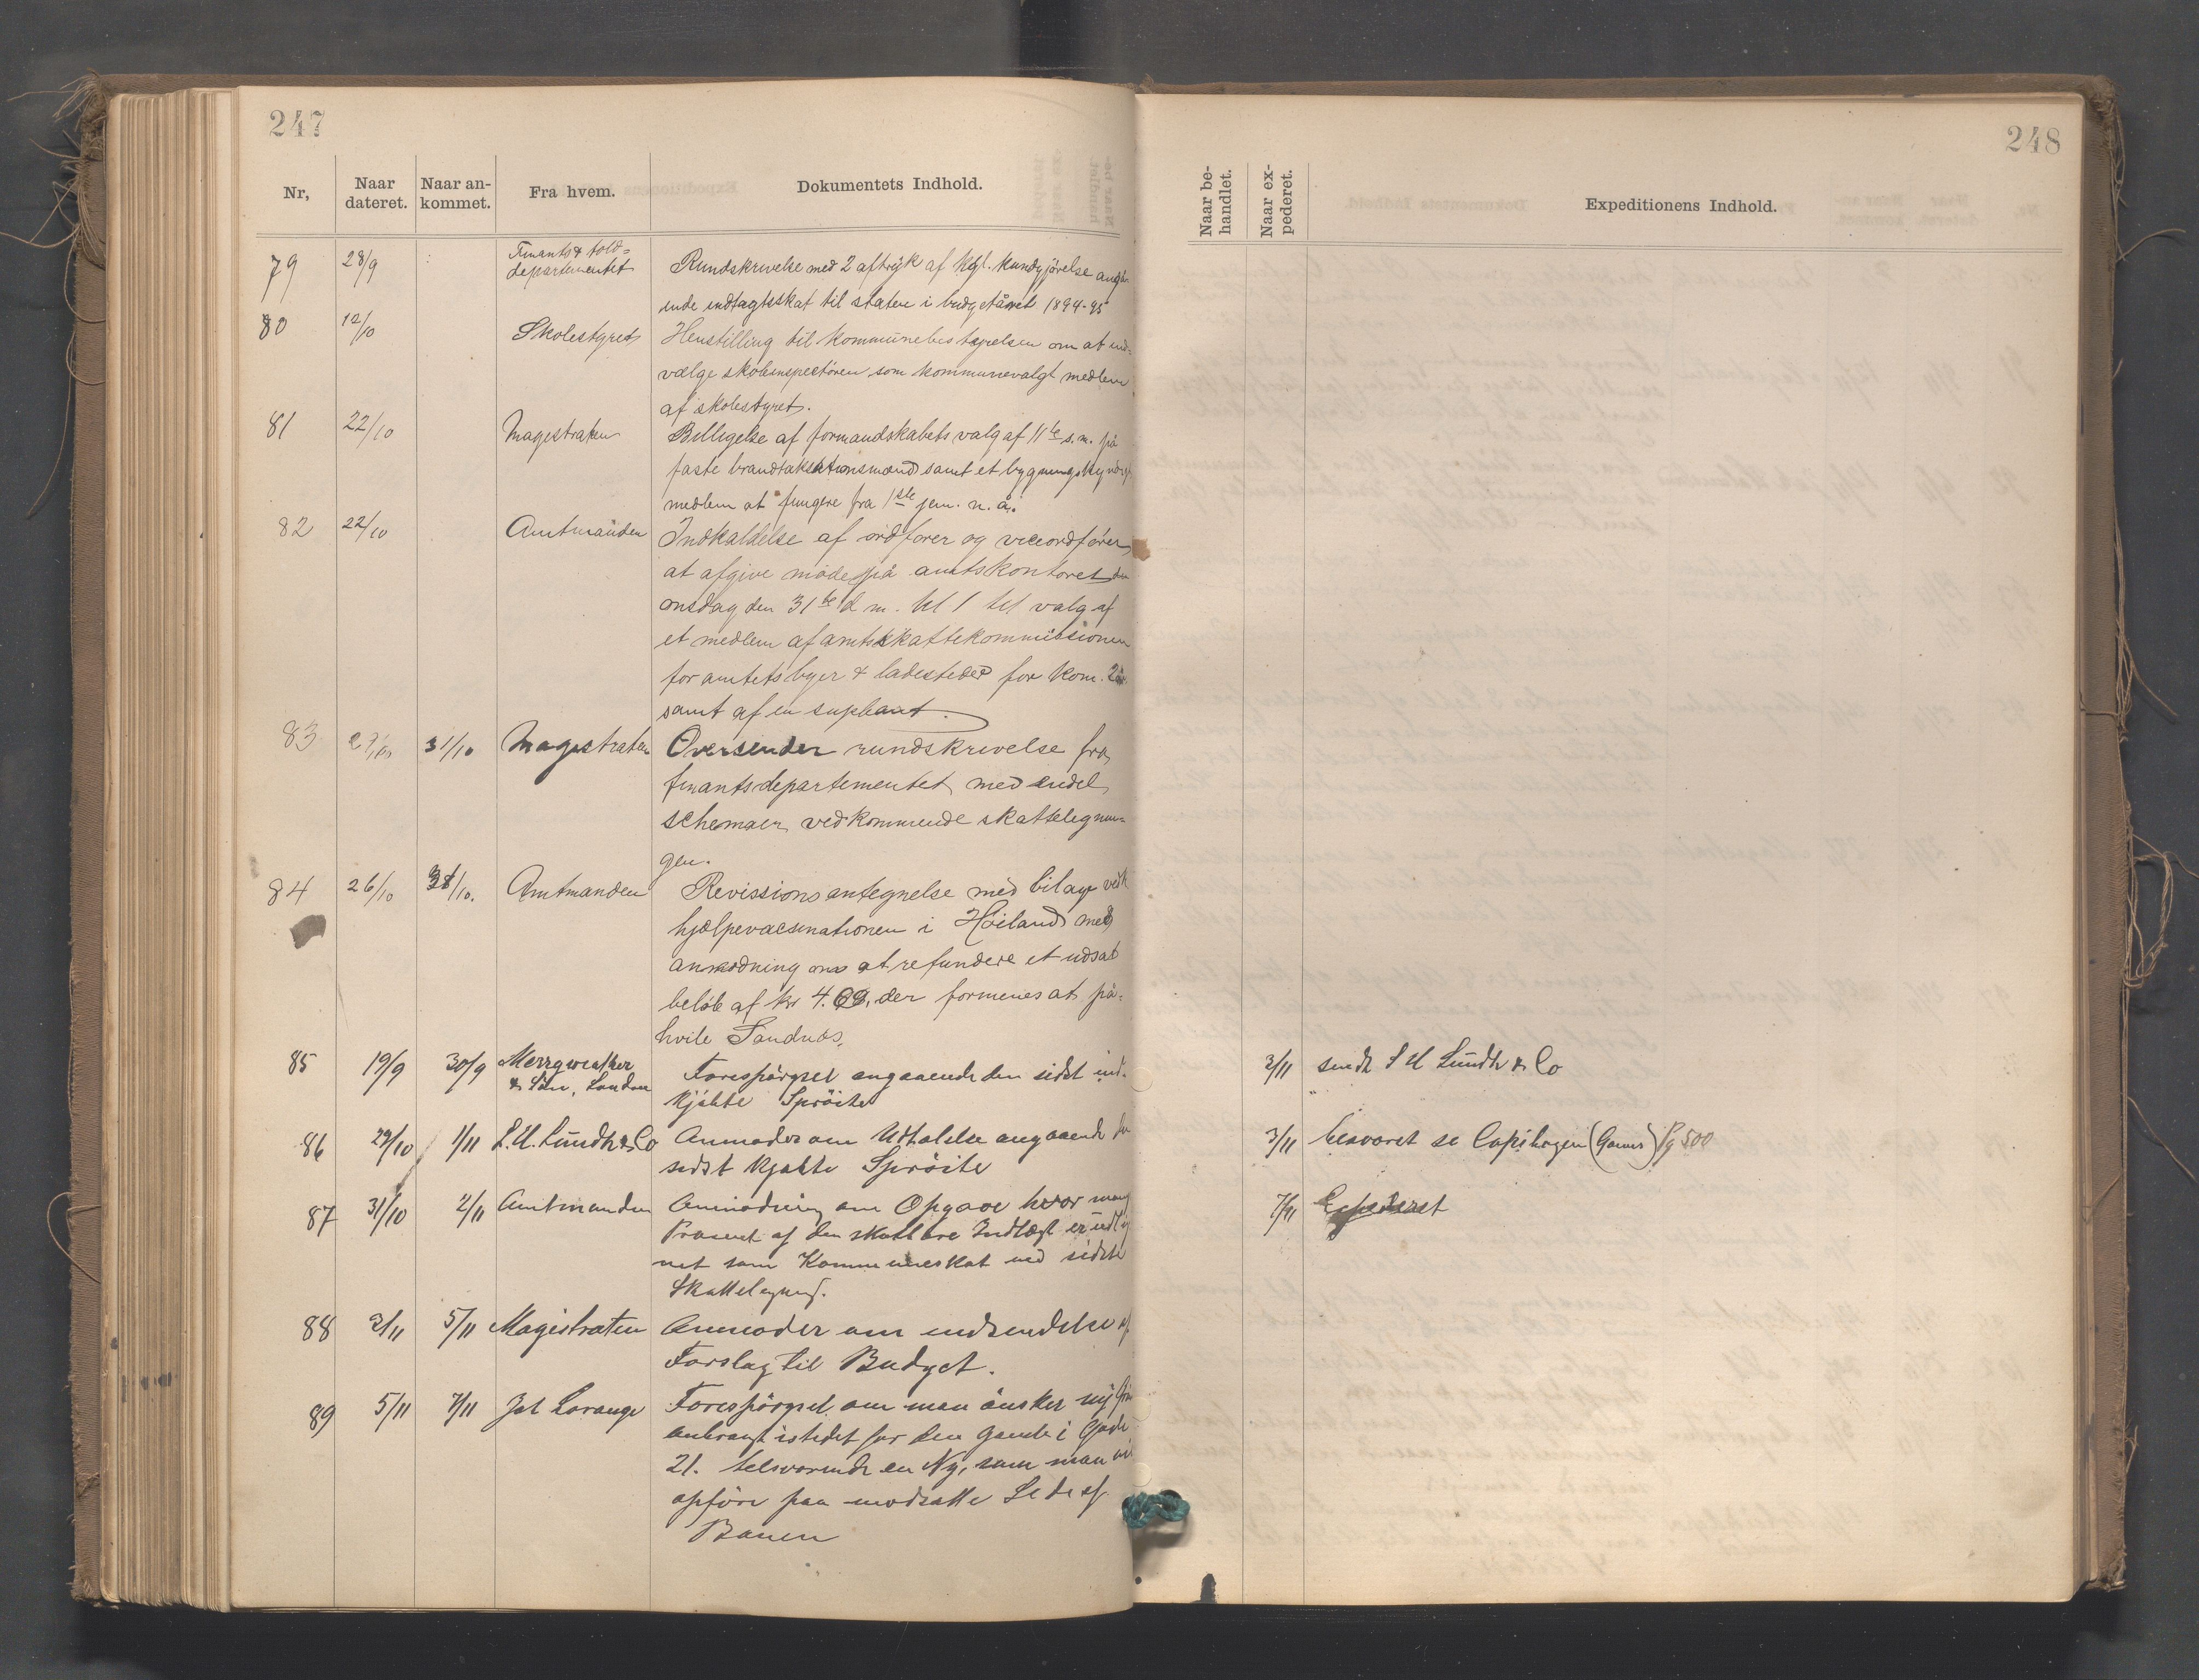 247
Nr, Naar dateret. Naar an- kommet. Fra hvem. Dokumentets Indhold.
79 28/9 Finants & told=
departementet Rundskrivelse med 2 aftryk af kgl. kundgjörelse angå-
ende indtægtsskat til staten i budgetåret 1894-95
80 12/10 Skolestyret Henstilling til kommunebestyrelsen om at ind-
vælge skoleinspectören som kommunevalgt medlem
af skolestyret.
81 22/10 Magistraten Billigelse af formandskabets valg af 11te s.m. på
faste brandtakstationsmænd samt et bygningskyndigt
medlem at fungere fra 1ste jan. n. å.
82 22/10 Amtmanden Indkaldelse af ordförer og viceordförer
at afgive möde på amtskontoret
onsdag den 31te d m. kl 1 til valg af
et medlem af amtsskattekommissionen
for amtets byer & ladesteder for kom. 2
samt af en suplant.
83 31/10 Magistraten Oversender rundskrivelse fra
finantsdepartementet med endel
schemaer vedkommende skattelignin-
gen.
84 26/10 /10. Amtmanden Revissionsantegnelse med bilage vedk
hjælpevacsinationen i Höiland med
anmodning om at refundere et udsat
belöb af kr 4. der formenes at på-
hvile Sandnæs.
85 19/9 30/9 Merryweather
& Sön, London Forespörgsel angaaende den sidst ind-
kjöbte Spröite
86 29/10 1/11 L. U. Lündh & Co Anmoder om Udtalelse angaaende
sidst kjöbte Spröite
87 31/10 2/11 Amtmanden Anmodning om Opgave hvor mang
Procent af den skatbare Indtægt er udlig
net som Kommuneskat ved sidste
Skatteligning.
88 2/11 5/11 Magistraten Anmoder om indsendelse af
Forslag til Budget.
89 5/11 7/11 Forespörgsel om man önsker ny
anbragt istedet for den gamle i Gade
21. telsvarende en Ny, som man vil
opföre paa modsatte Side af
Banen
248
Naar be- handlet. Naar ex- pederet. Expeditionens Indhold.
3/11 sendt L U Lündh & Co
3/11 besvaret se Copibogen Pg 500
7/11 Expederet